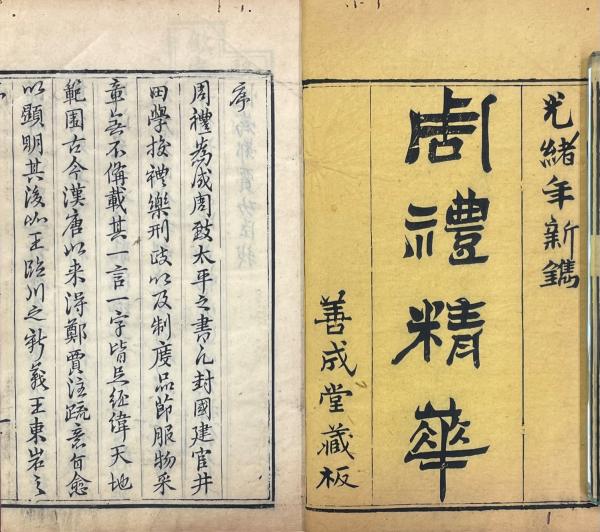 光緒年新鐫
周禮精華
善成堂藏板
序
周禮為成周致太平之書凡封國建官井
田學校禮樂刑政以及制度品節服物采
章無不備載其一言一字皆足經緯天地
範圍古今漢唐以来得鄭賈注疏意旨愈
以顯明其後如王臨川之新義王東岩之